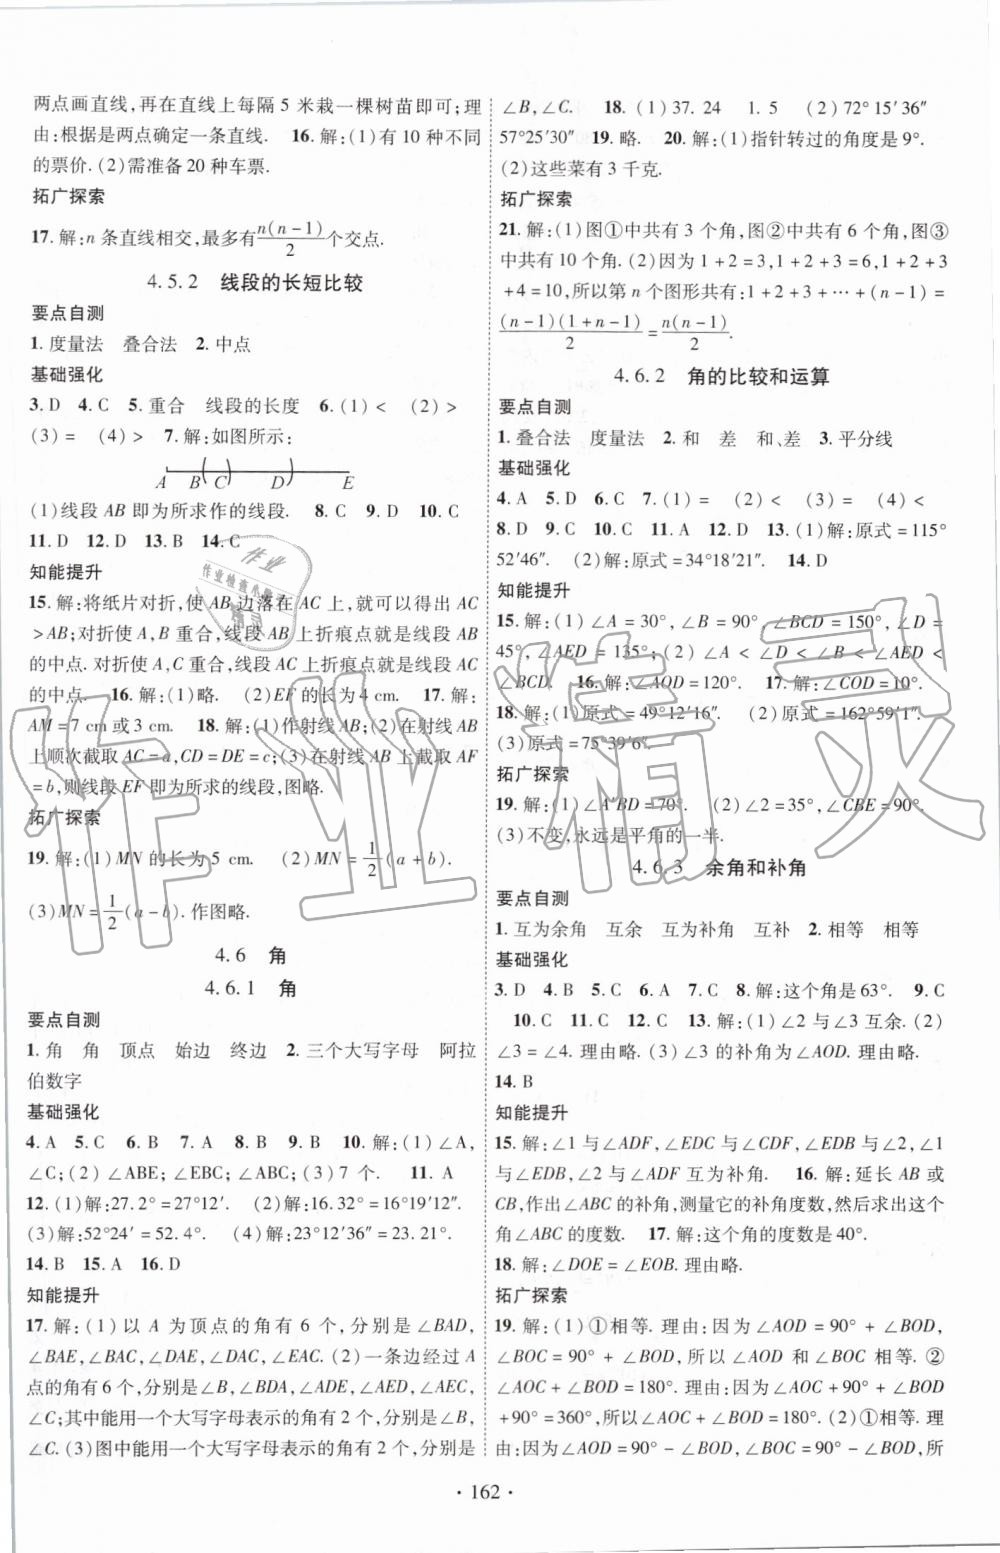 两点画直线,再在直线上每隔 5 米栽一棵树苗即可;理
由:根据是两点确定一条直线. 16. 解:(1)有 10 种不同
的票价. (2)需准备 20 种车票.
拓广探索
17. 解:n 条直线相交,最多有n(n-1)/2个交点.
4.5.2 线段的长短比较
要点自测
1. 度量法 叠合法 2. 中点
基础强化
3. D 4. C 5. 重合 线段的长度 6. (1)< (2)>
(3)= (4)> 7. 解:如图所示:
A B C D E
(1)线段 AB 即为所求作的线段. 8. C 9. D 10. C
11. D 12. D 13. B 14. C
知能提升
15. 解:将纸片对折,使 AB 边落在 AC 上,就可以得出 AC
>AB;对折使 A,B 重合,线段 AB 上折痕点就是线段 AB
的中点. 对折使 A,C 重合,线段 AC 上折痕点就是线段 AC
的中点. 16. 解:(1)略. (2)EF 的长为 4 cm. 17. 解:
AM=7 cm 或 3 cm. 18. 解:(1)作射线 AB;(2)在射线 AB
上顺次截取 AC=a,CD=DE=c;(3)在射线 AB 上截取 AF
=b,则线段 EF 即为所求的线段,图略.
拓广探索
19. 解:(1)MN 的长为 5 cm. (2)MN=1/2(a+b).
(3)MN=1/2(a-b). 作图略.
4.6 角
4.6.1 角
要点自测
1. 角 角 顶点 始边 终边 2. 三个大写字母 阿拉
伯数字
基础强化
4. A 5. C 6. B 7. A 8. B 9. B 10. 解:(1)∠A,
∠C;(2)∠ABE;∠EBC;∠ABC;(3)7 个. 11. A
12. (1)解:27.2°=27°12′. (2)解:16.32°=16°19′12″.
(3)解:52°24′=52.4°. (4)解:23°12′36″=23.21°.
14. B 15. A 16. D
知能提升
17. 解:(1)以 A 为顶点的角有 6 个,分别是∠BAD,
∠BAE,∠BAC,∠DAE,∠DAC,∠EAC. (2)一条边经过 A
点的角有 6 个,分别是∠B,∠BDA,∠ADE,∠AED,∠AEC,
∠C;其中能用一个大写字母表示的角有 2 个,分别是∠B,
∠C. (3)图中能用一个大写字母表示的角有 2 个,分别是
∠B,∠C. 18. (1)37. 24 1. 5 (2)72°15′36″
57°25′30″ 19. 略. 20. 解:(1)指针转过的角度是 9°.
(2)这些菜有 3 千克.
拓广探索
21. 解:(1)图①中共有 3 个角,图②中共有 6 个角,图③
中共有 10 个角. (2)因为 1+2=3,1+2+3=6,1+2+3
+4=10,所以第 n 个图形共有:1+2+3+⋯+(n-1)=
(n-1)(1+n-1)/2=n(n-1)/2.
4.6.2 角的比较和运算
要点自测
1. 叠合法 度量法 2. 和 差 和、差 3. 平分线
基础强化
4. A 5. D 6. C 7. (1)= (2)< (3)= (4)<
8. D 9. C 10. C 11. A 12. D 13. (1)解:原式=115°
52′46″. (2)解:原式=34°18′21″. 14. D
知能提升
15. 解:(1)∠A=30°,∠B=90°,∠BCD=150°,∠D=
45°,∠AED=135°;(2)∠A<∠D<∠B<∠AED<
∠BCD. 16. 解:∠AOD=120°. 17. 解:∠COD=10°.
18. 解:(1)原式=49°12′16″. (2)原式=162°59′1″.
(3)原式=75°39′6″.
拓广探索
19. 解:(1)∠A′BD=70°. (2)∠2=35°,∠CBE=90°.
(3)不变,永远是平角的一半.
4.6.3 余角和补角
要点自测
1. 互为余角 互余 互为补角 互补 2. 相等 相等
基础强化
3. D 4. B 5. C 6. A 7. C 8. 解:这个角是 63°. 9. C
10. C 11. C 12. C 13. 解:(1)∠2 与∠3 互余. (2)
∠3=∠4. 理由略. (3)∠3 的补角为∠AOD. 理由略.
14. B
知能提升
15. 解:∠1 与∠ADF,∠EDC 与∠CDF,∠EDB 与∠2,∠1
与∠EDB,∠2 与∠ADF 互为补角. 16. 解:延长 AB 或
CB,作出∠ABC 的补角,测量它的补角度数,然后求出这个
角∠ABC 的度数. 17. 解:这个角的度数是 40°.
18. 解:∠DOE=∠EOB. 理由略.
拓广探索
19. 解:(1)①相等. 理由:因为∠AOD=90°+∠BOD,
∠BOC=90°+∠BOD,所以∠AOD 和∠BOC 相等. ②
∠AOC+∠BOD=180°. 理由:因为∠AOC+90°+∠BOD
+90°=360°,所以∠AOC+∠BOD=180°. (2)①相等. 理
由:因为∠AOD=90°-∠BOD,∠BOC=90°-∠BOD,所
· 162 ·
作业精灵
作业
作业检查小